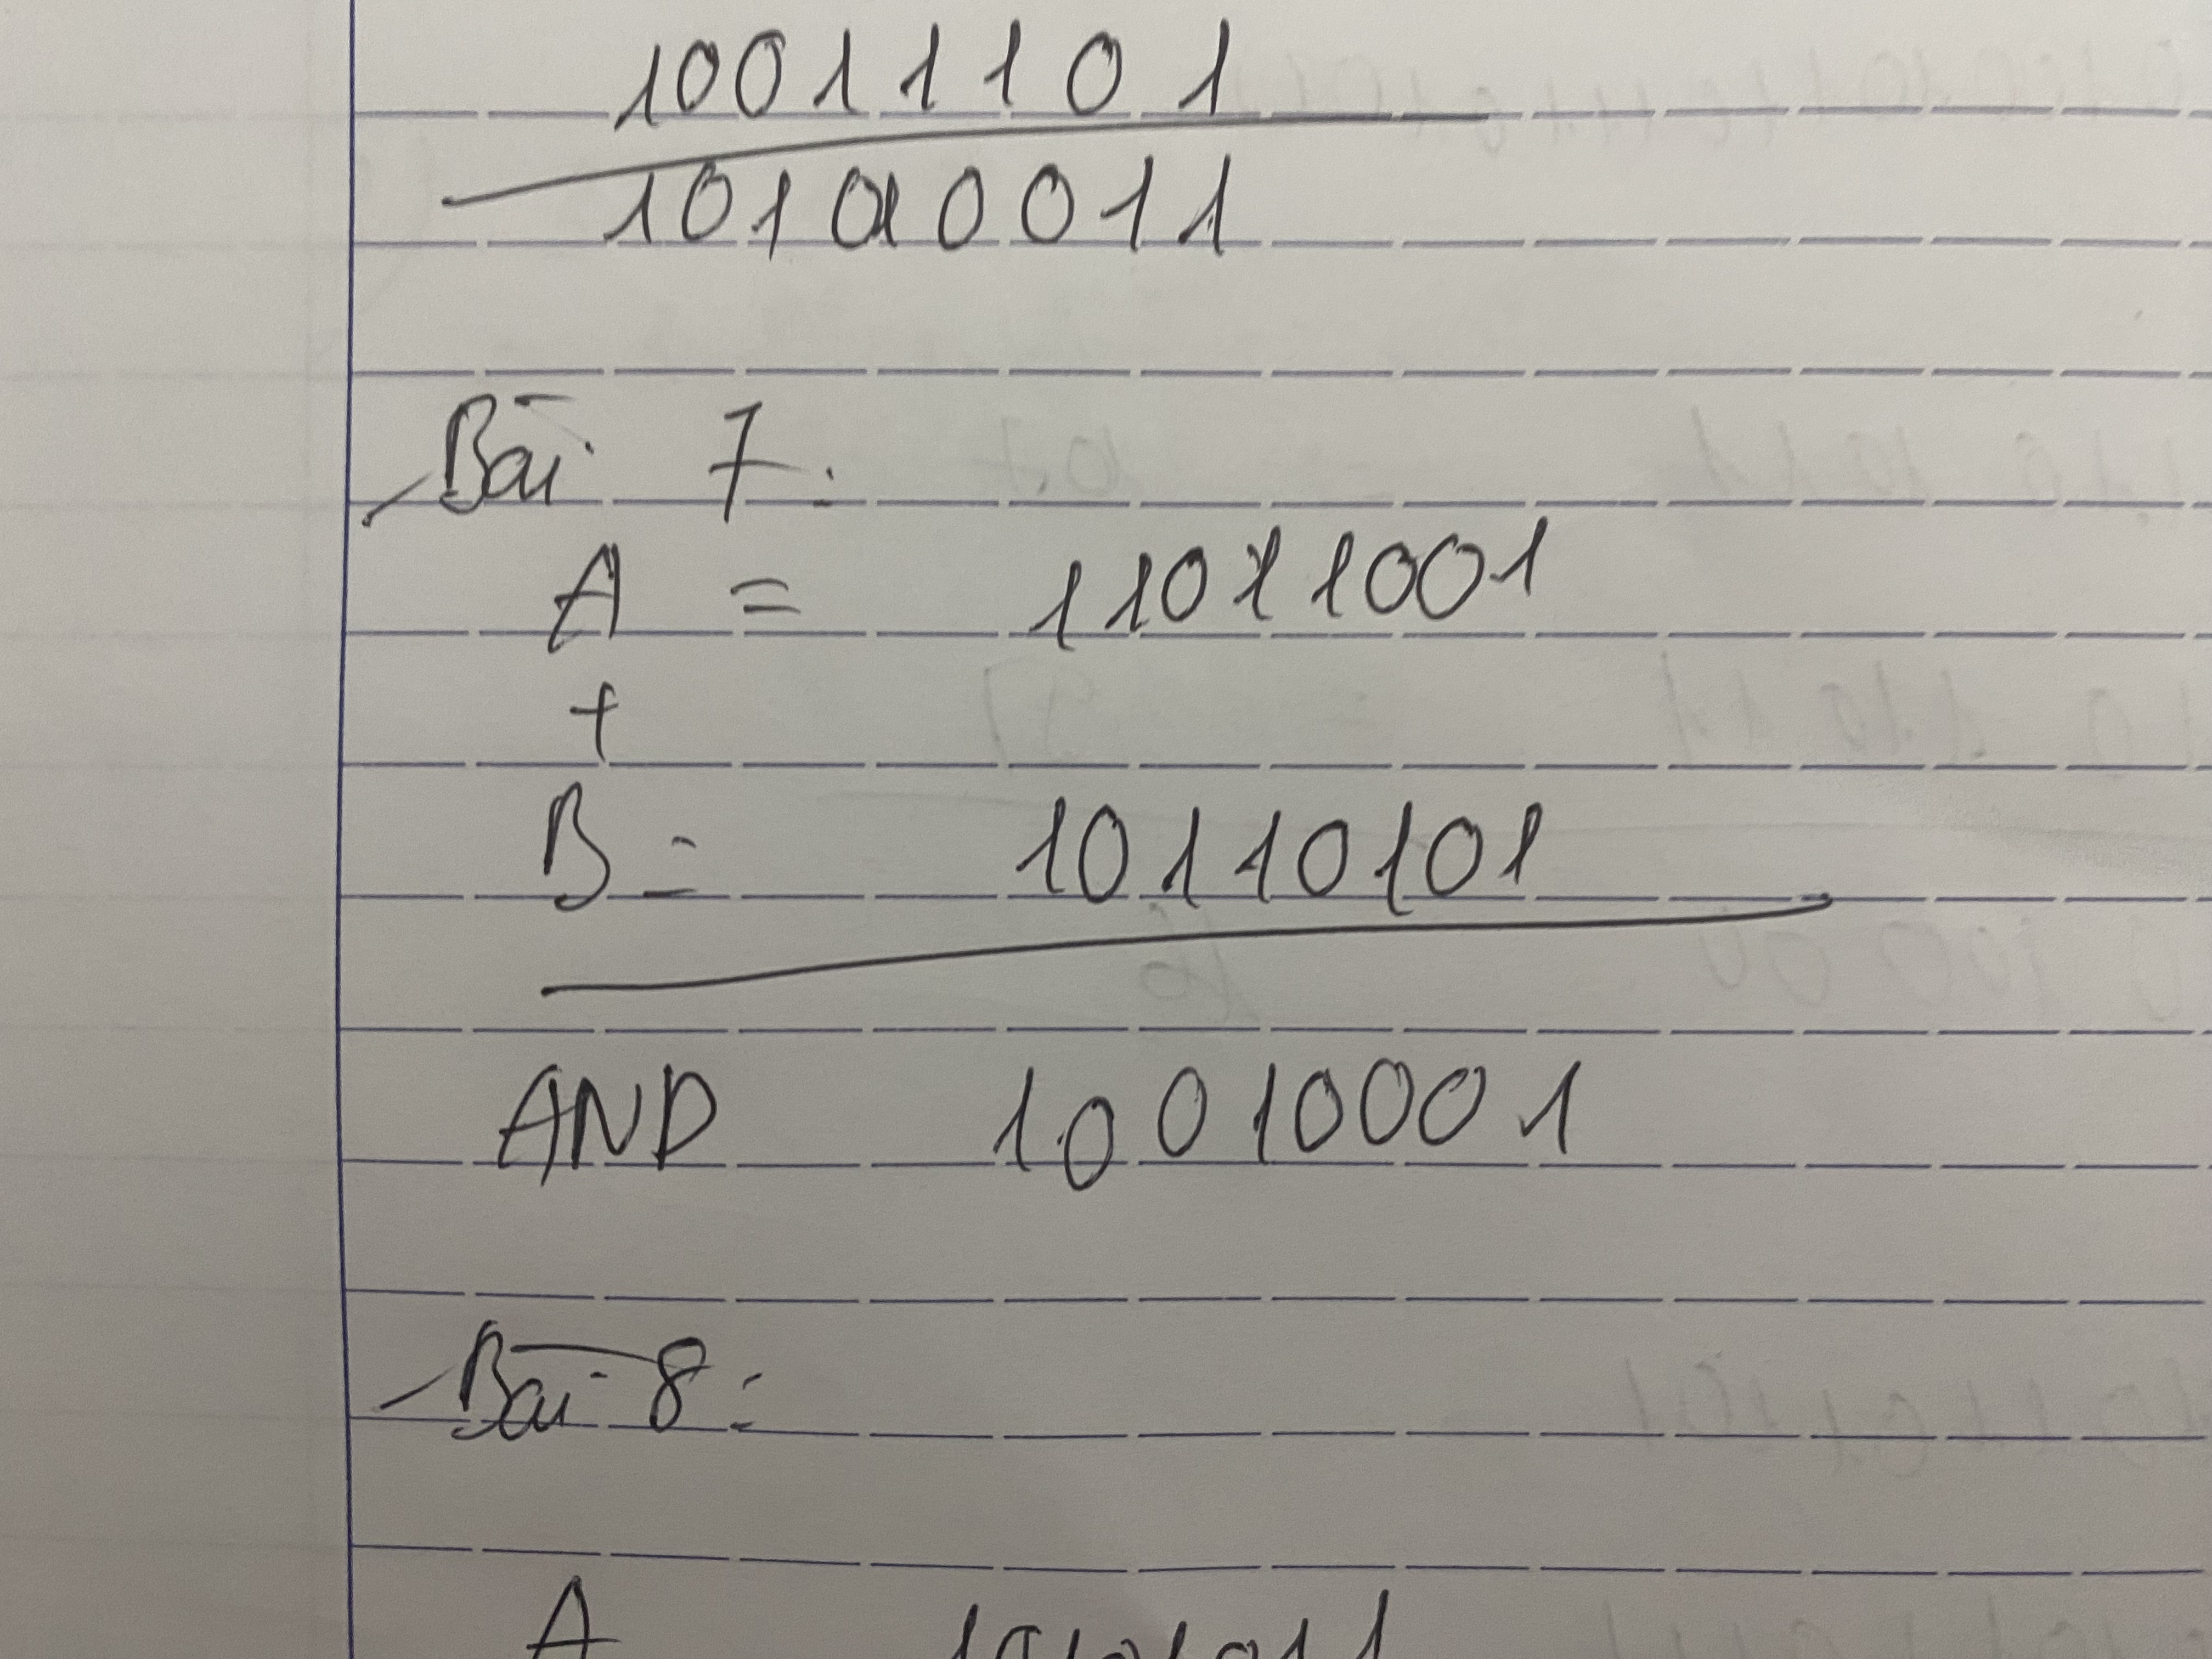 10011101
10100011
Bài 7:
A = 11011001
+
B = 10110101
AND 10010001
Bài 8:
A